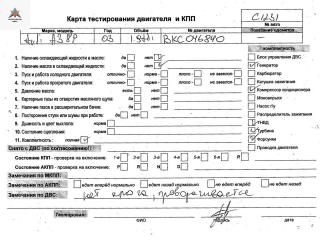 Карта тестирования двигателя и КПП
С1231
№ авто
Марка, модель
Год
Объём
№ двигателя
Показания одометра
03
BKC046840
Комплектность
1. Наличие охлаждающей жидкости в масле: да нет
2. Наличие масла в охлаждающей жидкости: да нет
3. Пуск и работа холодного двигателя: отлично- норма- плохо- не завелся-
4. Пуск и работа горячего двигателя: отлично- норма- плохо- не завелся-
5. Давление масла: есть- нет-
6. Картерные газы из отверстия масляного щупа: да нет
7. Наличие газов в расширительном бачке: да нет
8. Посторонние стуки или шумы при работе: да нет
9. Дымность и цвет выхлопа: норма-
10. Состояние сцепления: норма-
11. Комплектность: полная-
Блок управления ДВС
Генератор
Карбюратор
Катушки зажигания
Компрессор кондиционера
Моновпрыск
Насос г/у
Распределитель зажигания
ТНВД
Турбина
Форсунки
Проводка двигателя
Снято с ДВС (по согласованию):
Состояние МКПП - проверка на включение: 1-я 2-я 3-я 4-я 5-я R
Состояние АКПП - проверка на включение: P R N D
Замечания по МКПП:
Замечания по АКПП: едет вперёд нормально не едет вперёд едет назад нормально не едет назад
Замечания по ДВС: нет
Тестировал:
ФИО
подпись
дата